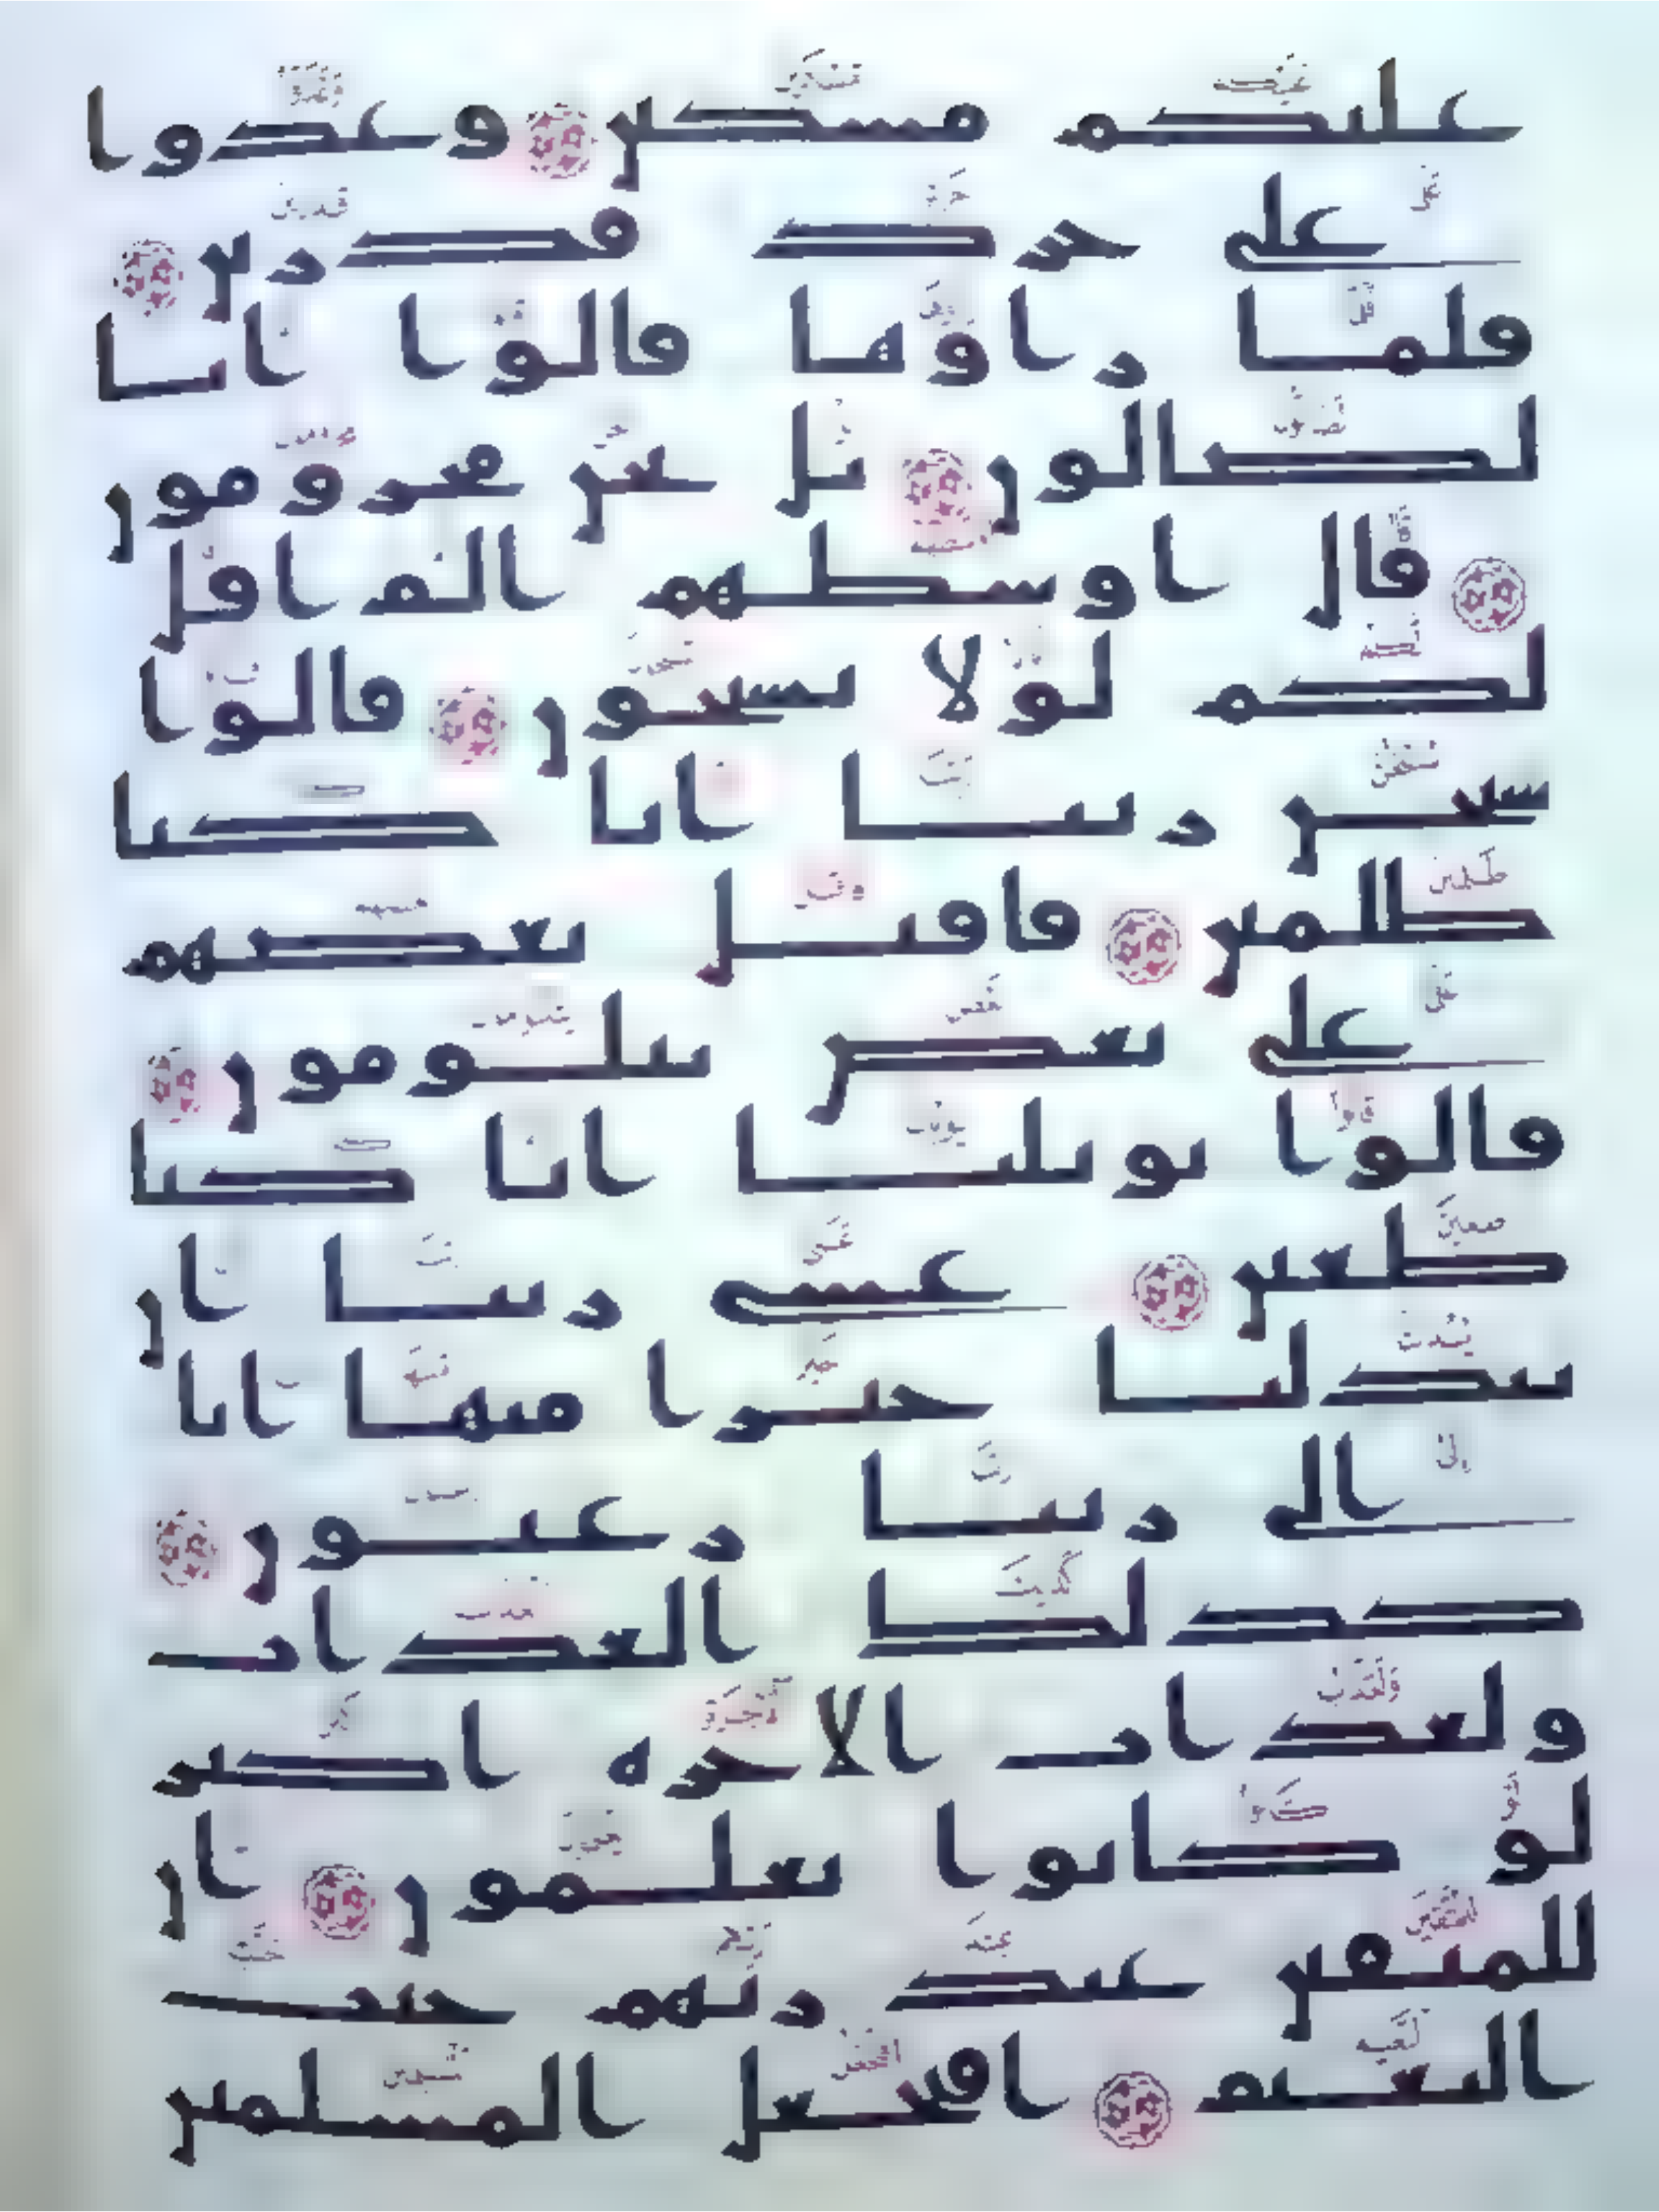 عليكم مسكين وغدوا
على حرد قدرين
فلما راوها قالوا انا
لضالون بل نحن محرومون
قال اوسطهم الم اقل
لكم لولا تسبحون قالوا
سبحن ربنا انا كنا
ظلمين فاقبل بعضهم
على بعض يتلومون
قالوا يويلنا انا كنا
طغين عسى ربنا ان
يبدلنا خيرا منها انا
الى ربنا رغبون
كذلك العذاب
ولعذاب الاخرة اكبر
لو كانوا يعلمون ان
للمتقين عند ربهم جنت
النعيم افنجعل المسلمين